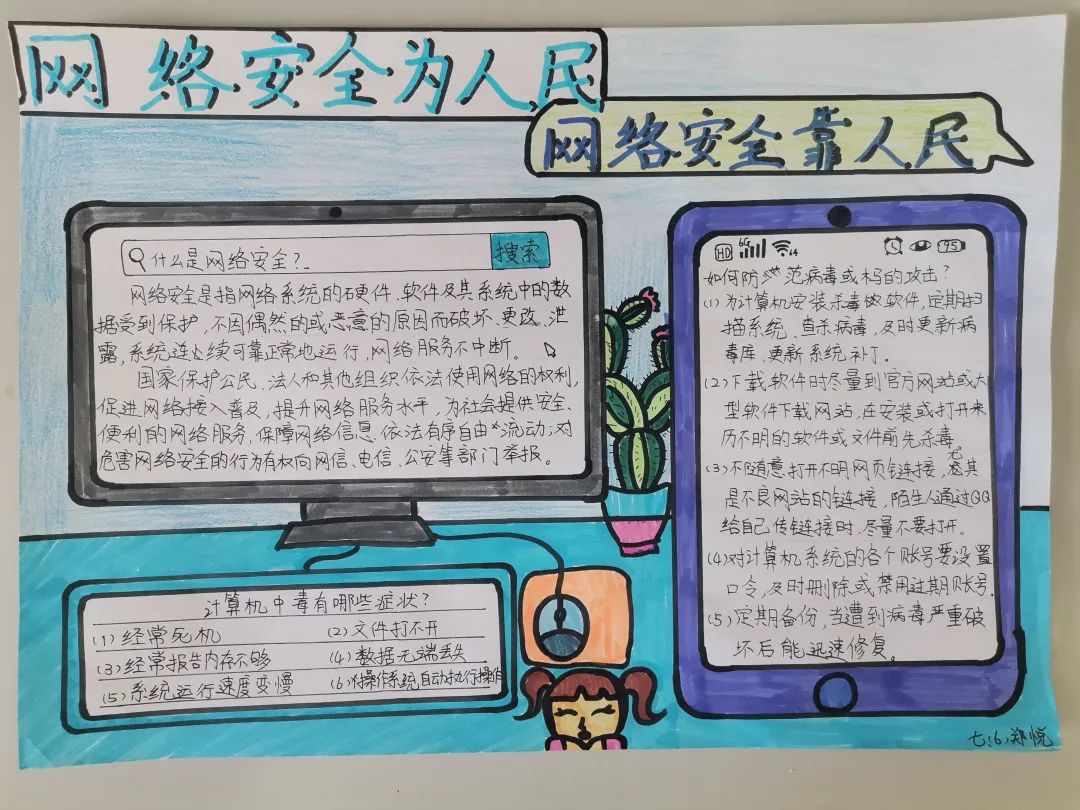 网络安全为人民
网络安全靠人民
什么是网络安全?
搜索
网络安全是指网络系统的硬件、软件及其系统中的数
据受到保护,不因偶然的或恶意的原因而破坏、更改、泄
露,系统连续可靠正常地运行,网络服务不中断。
国家保护公民、法人和其他组织依法使用网络的权利,
促进网络接入普及,提升网络服务水平,为社会提供安全、
便利的网络服务,保障网络信息依法有序自由流动;对
危害网络安全的行为有权向网信、电信、公安等部门举报。
计算机中毒有哪些症状?
(1)经常死机
(2)文件打不开
(3)经常报告内存不够
(4)数据无端丢失
(5)系统运行速度变慢
(6)操作系统自动执行操作
HD 6G 95
如何防范病毒或木马的攻击?
(1)为计算机安装杀毒软件,定期扫
描系统、查杀病毒,及时更新病
毒库、更新系统补丁。
(2)下载软件时尽量到官方网站或大
型软件下载网站,在安装或打开来
历不明的软件或文件前先杀毒。
(3)不随意打开不明网页链接,尤其
是不良网站的链接,陌生人通过QQ
给自己传链接时,尽量不要打开。
(4)对计算机系统的各个账号要设置
口令,及时删除或禁用过期账号。
(5)定期备份,当遭到病毒严重破
坏后能迅速修复。
七(6)郑悦